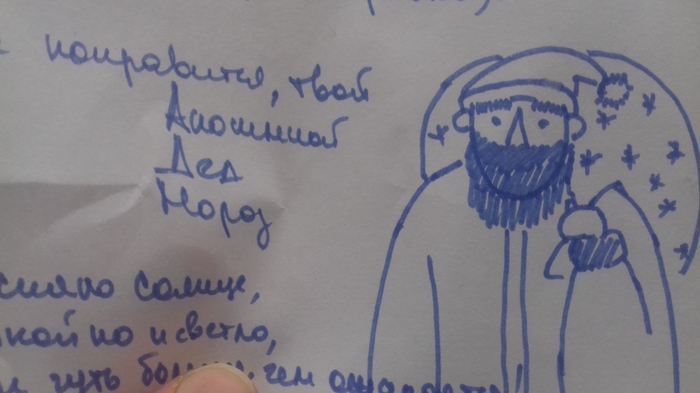 понравится, твой
Анонимный
Дед
Мороз
сияло солнце,
койно и светло,
чуть чем